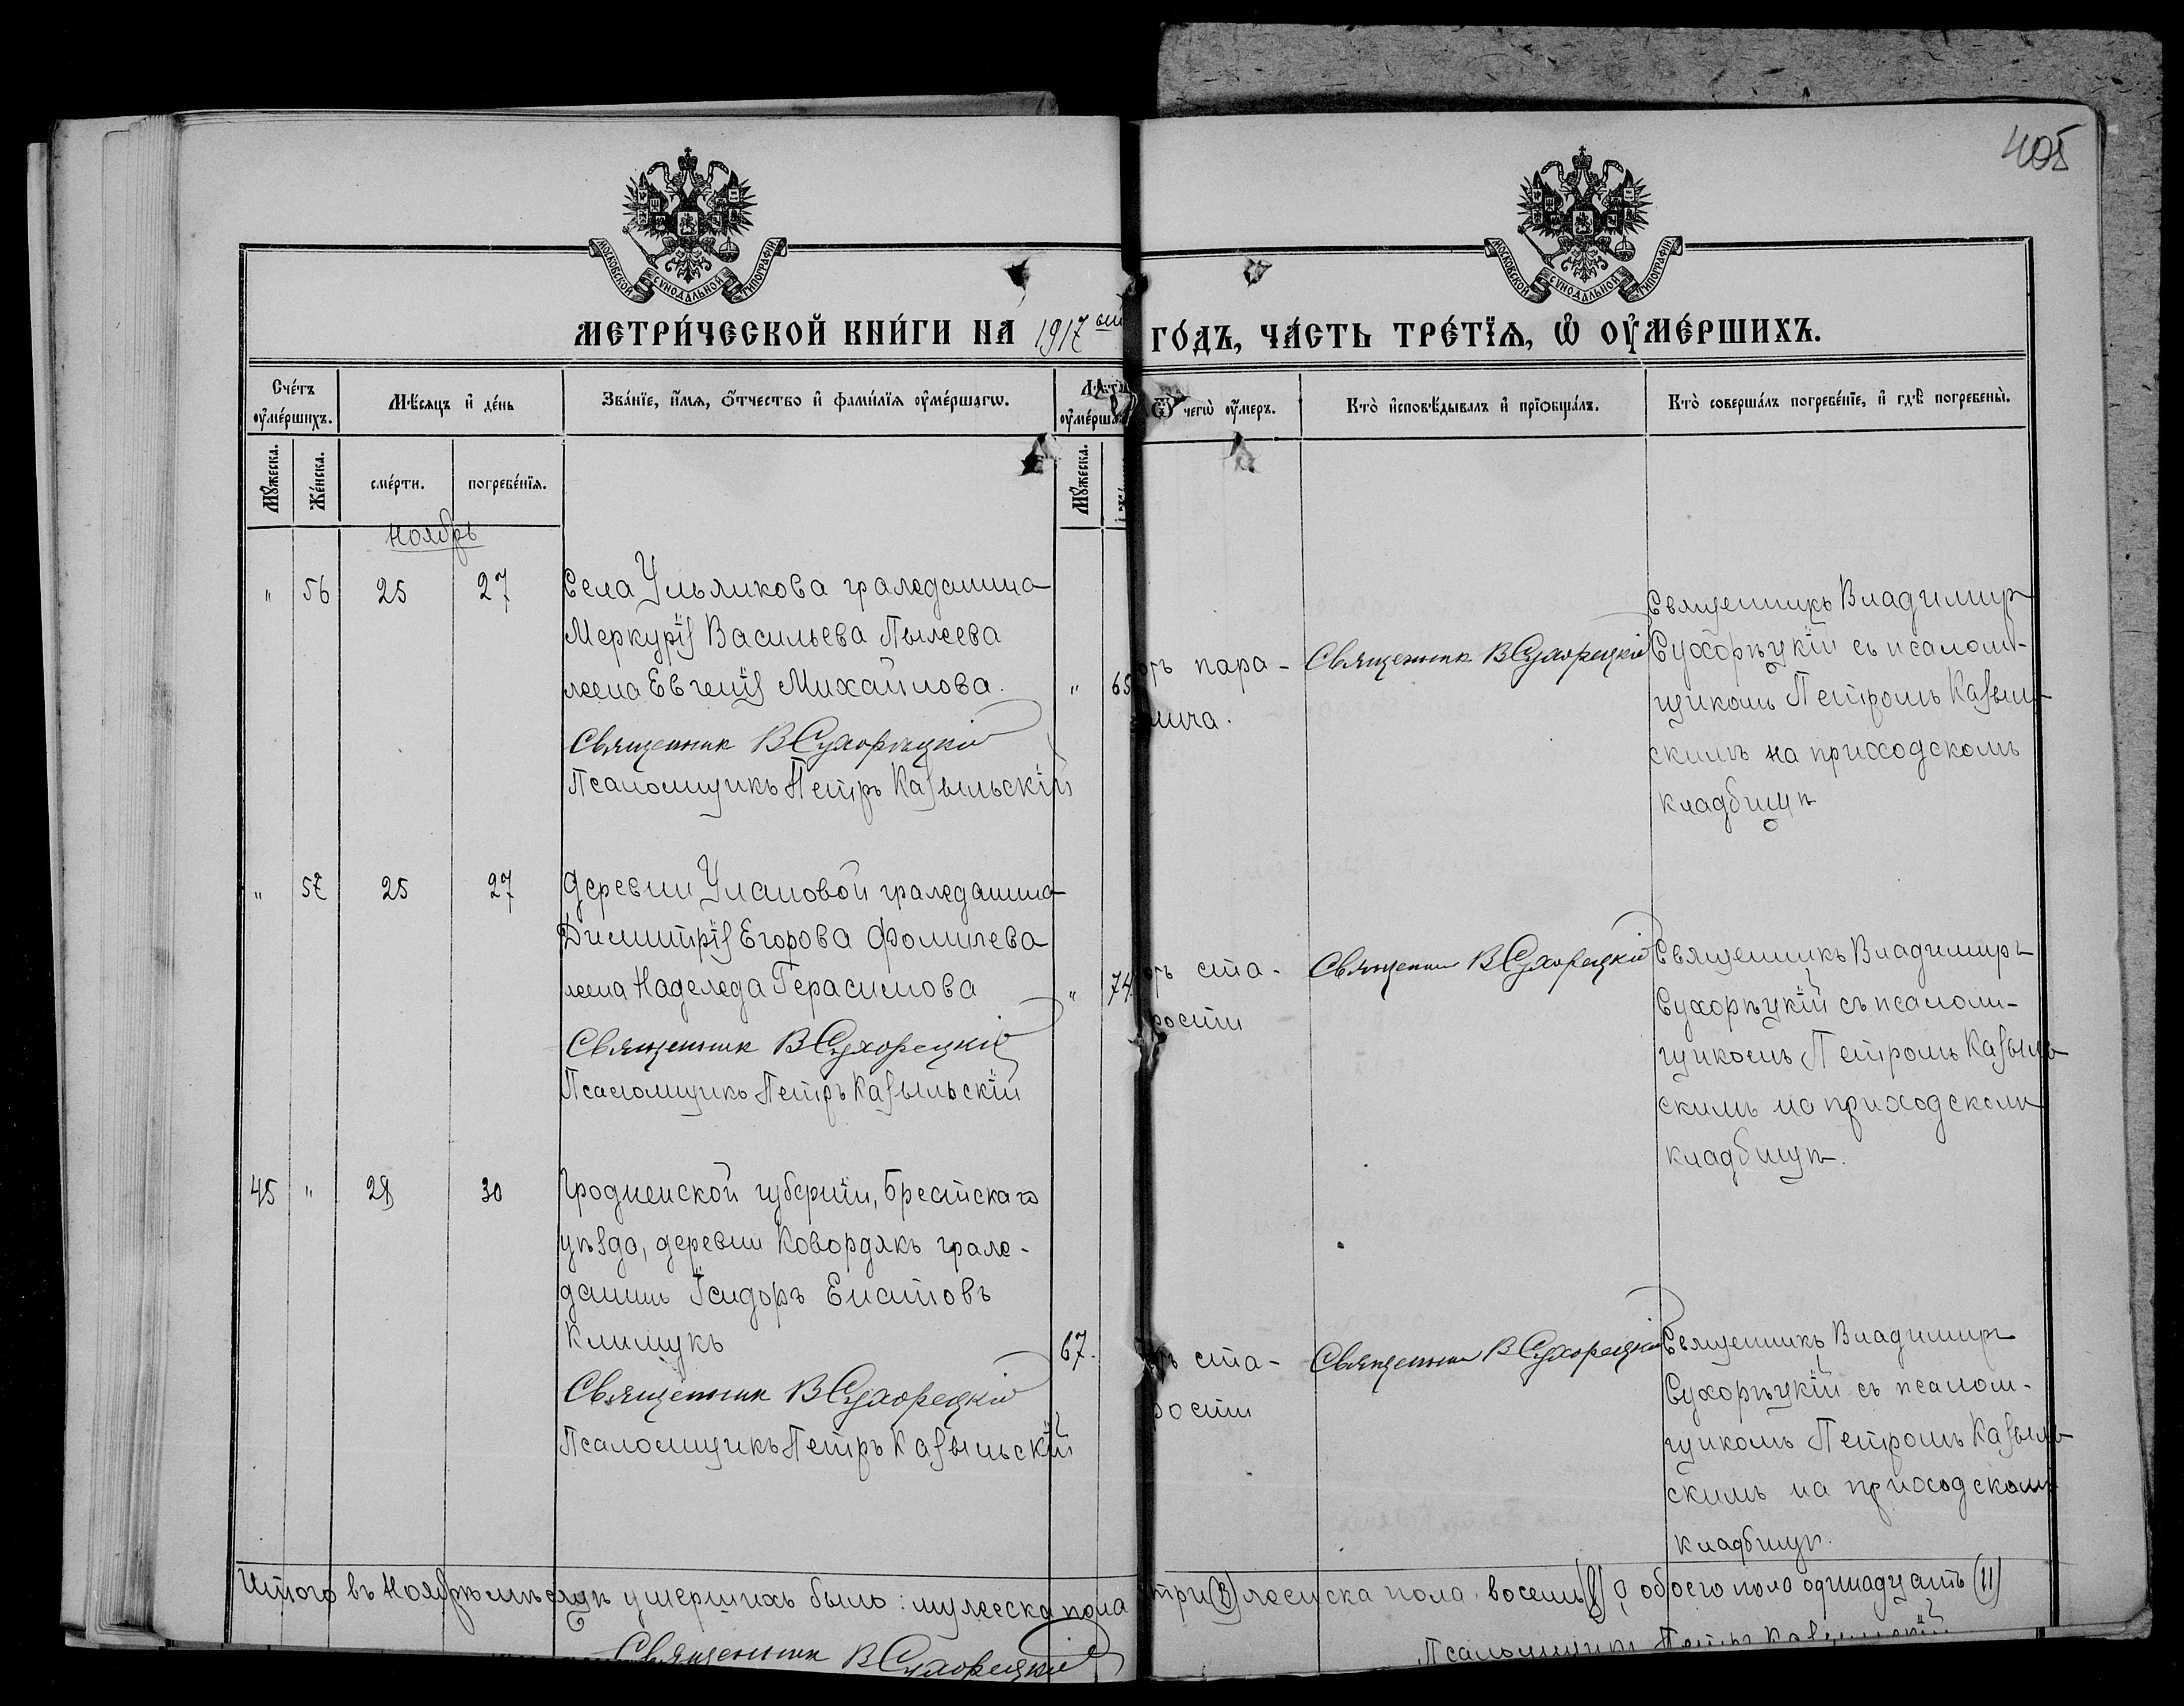 405
МОСКОВСКОЙ СУНОДАЛЬНОЙ ТИПОГРАФІИ
МОСКОВСКОЙ СУНОДАЛЬНОЙ ТИПОГРАФІИ
МЕТРИ́ЧЕСКОЙ КНИ́ГИ НА 1917 ГО́ДЪ, ЧА́СТЬ ТРЕ́ТЇѦ, Ѡ҆ ОУ҆МЕ́РШИХЪ.
Сче́тъ оу҆ме́ршихъ.
Мѣ́сяцъ и҆ де́нь
Зва́нїе, и҆́мѧ, ѻ҆́тчество и҆ фами́лїѧ оу҆ме́ршагѡ.
Лѣта̀ оу҆ме́ршагѡ
Ѿ чегѡ̀ оу҆́меръ.
Кто̀ и҆сповѣ́дывалъ и҆ прїѡбща́лъ.
Кто̀ соверша́лъ погребе́нїе, и҆ гдѣ̀ погребены̀.
Мꙋ́жеска.
Же́нска.
сме́рти.
погребе́нїѧ.
Мꙋ́жеска.
Ноябрь
" 56 25 27
Села Ульянкова гражданина
Меркурія Васильева Пылеева
жена Евгенія Михайлова.
Священник В Сухорѣцкій
Псаломщикъ Петръ Казыльскій
" 65
отъ пара-
лича.
Священник В Сухорецкій
Священникъ Владимир
Сухорѣцкій съ псалом-
щикомъ Петромъ Казыль-
скимъ на приходскомъ
кладбищѣ
" 57 25 27
Деревни Улановой гражданина
Димитрія Егорова Фомичева
жена Надежда Герасимова
Священник В Сухорецкій
Псаломщикъ Петръ Казыльскій
" 74.
отъ ста-
рости
Священник В Сухорецкій
Священникъ Владимиръ
Сухорѣцкій съ псалом-
щикомъ Петромъ Казыль
скимъ на приходскомъ
кладбищѣ.
45 " 28 30
Гродненской губерніи, Брестскаго
уѣзда, деревни Ковордякъ граж-
данинъ Ісидоръ Енатовъ
Климукъ
Священник В Сухорецкій
Псаломщикъ Петръ Казыльскій
67.
отъ ста-
рости
Священник В Сухорецкій
Священникъ Владимиръ
Сухорѣцкій съ псалом-
щикомъ Петромъ Казыль
скимъ на приходскомъ
кладбищѣ.
Итого въ Ноябрѣ мѣсяцѣ умершихъ было: мужеска пола три (3) женска пола восемь (8) обоего пола одинадцать (11)
Священник В Сухорецкій
Псаломщикъ Петръ Казыльскій